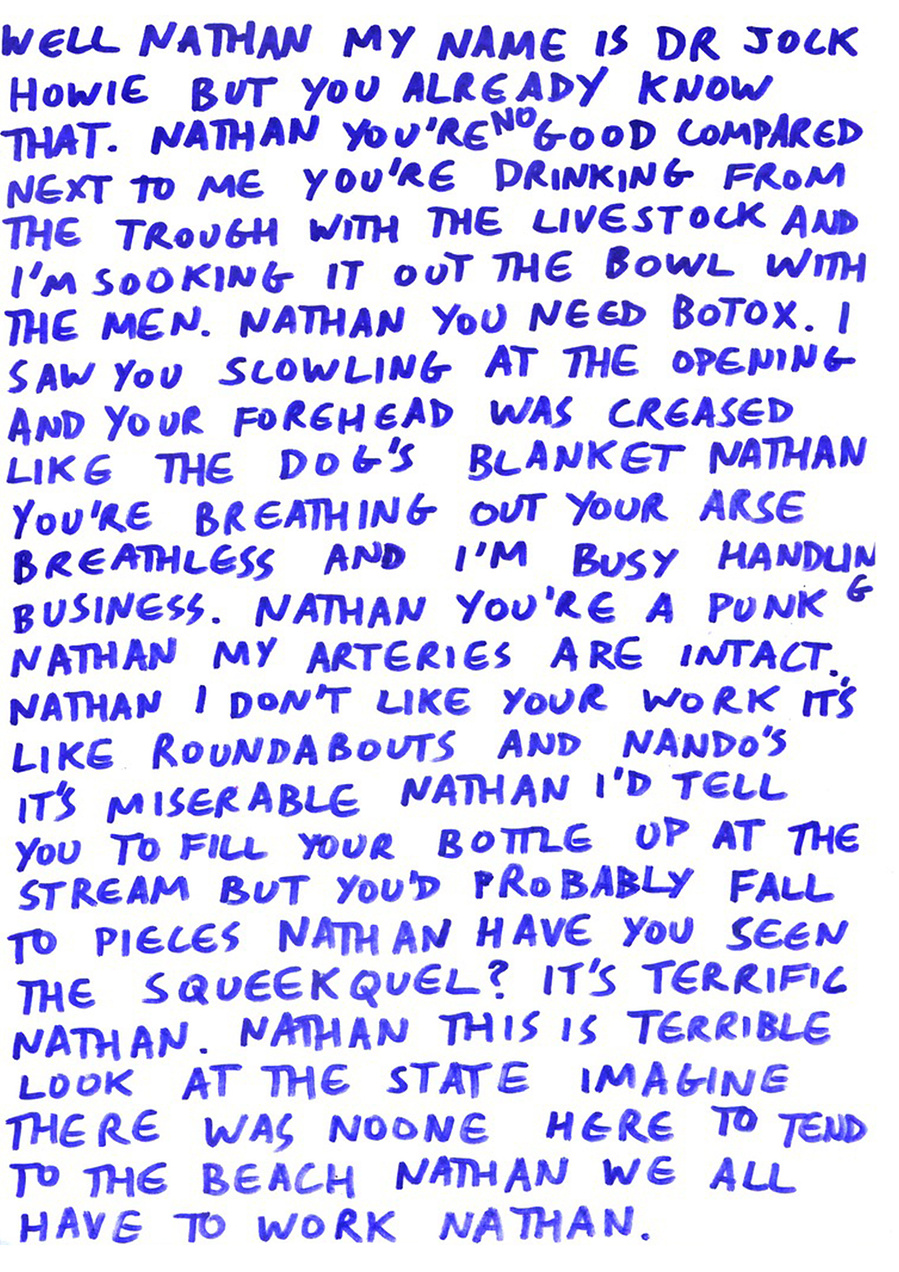 WELL NATHAN MY NAME IS DR JOCK
HOWIE BUT YOU ALREADY KNOW
THAT. NATHAN YOU'RE NO GOOD COMPARED
NEXT TO ME YOU'RE DRINKING FROM
THE TROUGH WITH THE LIVESTOCK AND
I'M SOOKING IT OUT THE BOWL WITH
THE MEN. NATHAN YOU NEED BOTOX. I
SAW YOU SCOWLING AT THE OPENING
AND YOUR FOREHEAD WAS CREASED
LIKE THE DOG'S BLANKET NATHAN
YOU'RE BREATHING OUT YOUR ARSE
BREATHLESS AND I'M BUSY HANDLING
BUSINESS. NATHAN YOU'RE A PUNK
NATHAN MY ARTERIES ARE INTACT.
NATHAN I DON'T LIKE YOUR WORK IT'S
LIKE ROUNDABOUTS AND NANDO'S
IT'S MISERABLE NATHAN I'D TELL
YOU TO FILL YOUR BOTTLE UP AT THE
STREAM BUT YOU'D PROBABLY FALL
TO PIECES NATHAN HAVE YOU SEEN
THE SQUEEKQUEL? IT'S TERRIFIC
NATHAN. NATHAN THIS IS TERRIBLE
LOOK AT THE STATE IMAGINE
THERE WAS NOONE HERE TO TEND
TO THE BEACH NATHAN WE ALL
HAVE TO WORK NATHAN.